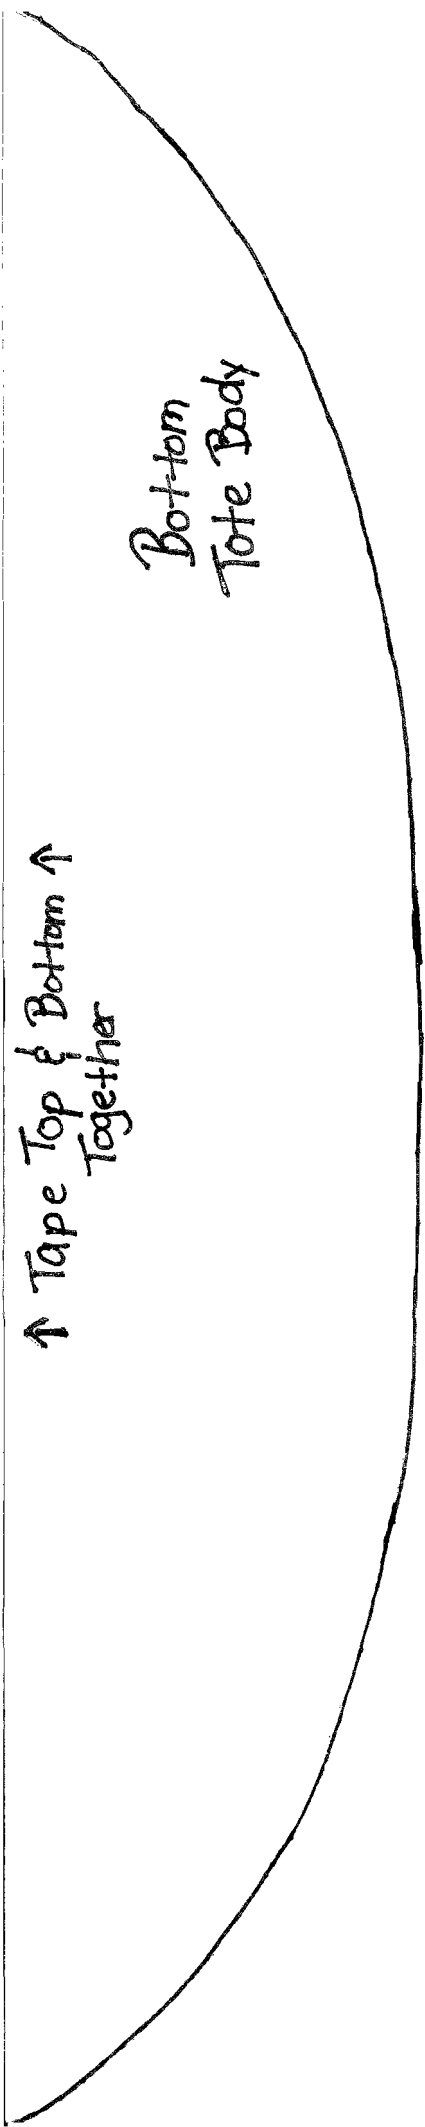 ↑ Tape Top & Bottom ↑
Together
Bottom
Tote Body